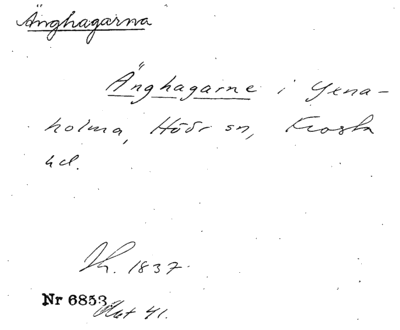 Änghagarna
Änghagarne i Yena-
holma, Höör sn, Frosta
hd.
Kh. 1837.
Nr 6853
Akt 41.